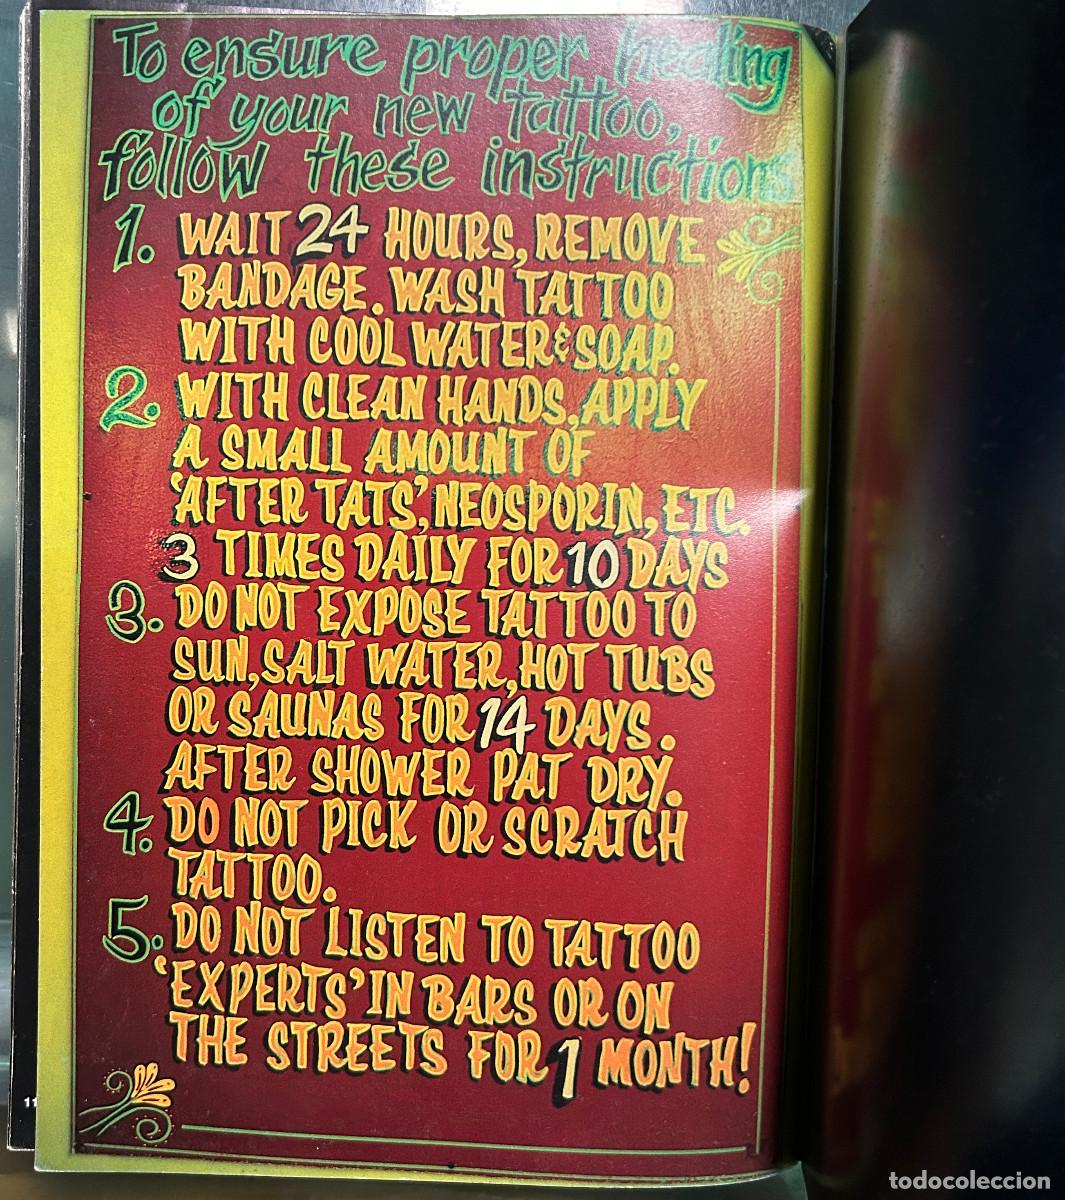 To ensure proper healing
of your new tattoo,
follow these instructions
1. WAIT 24 HOURS, REMOVE
BANDAGE. WASH TATTOO
WITH COOL WATER & SOAP.
2. WITH CLEAN HANDS, APPLY
A SMALL AMOUNT OF
'AFTER TATS', NEOSPORIN, ETC.
3 TIMES DAILY FOR 10 DAYS
3. DO NOT EXPOSE TATTOO TO
SUN, SALT WATER, HOT TUBS
OR SAUNAS FOR 14 DAYS.
AFTER SHOWER PAT DRY.
4. DO NOT PICK OR SCRATCH
TATTOO.
5. DO NOT LISTEN TO TATTOO
'EXPERTS' IN BARS OR ON
THE STREETS FOR 1 MONTH!
todocoleccion